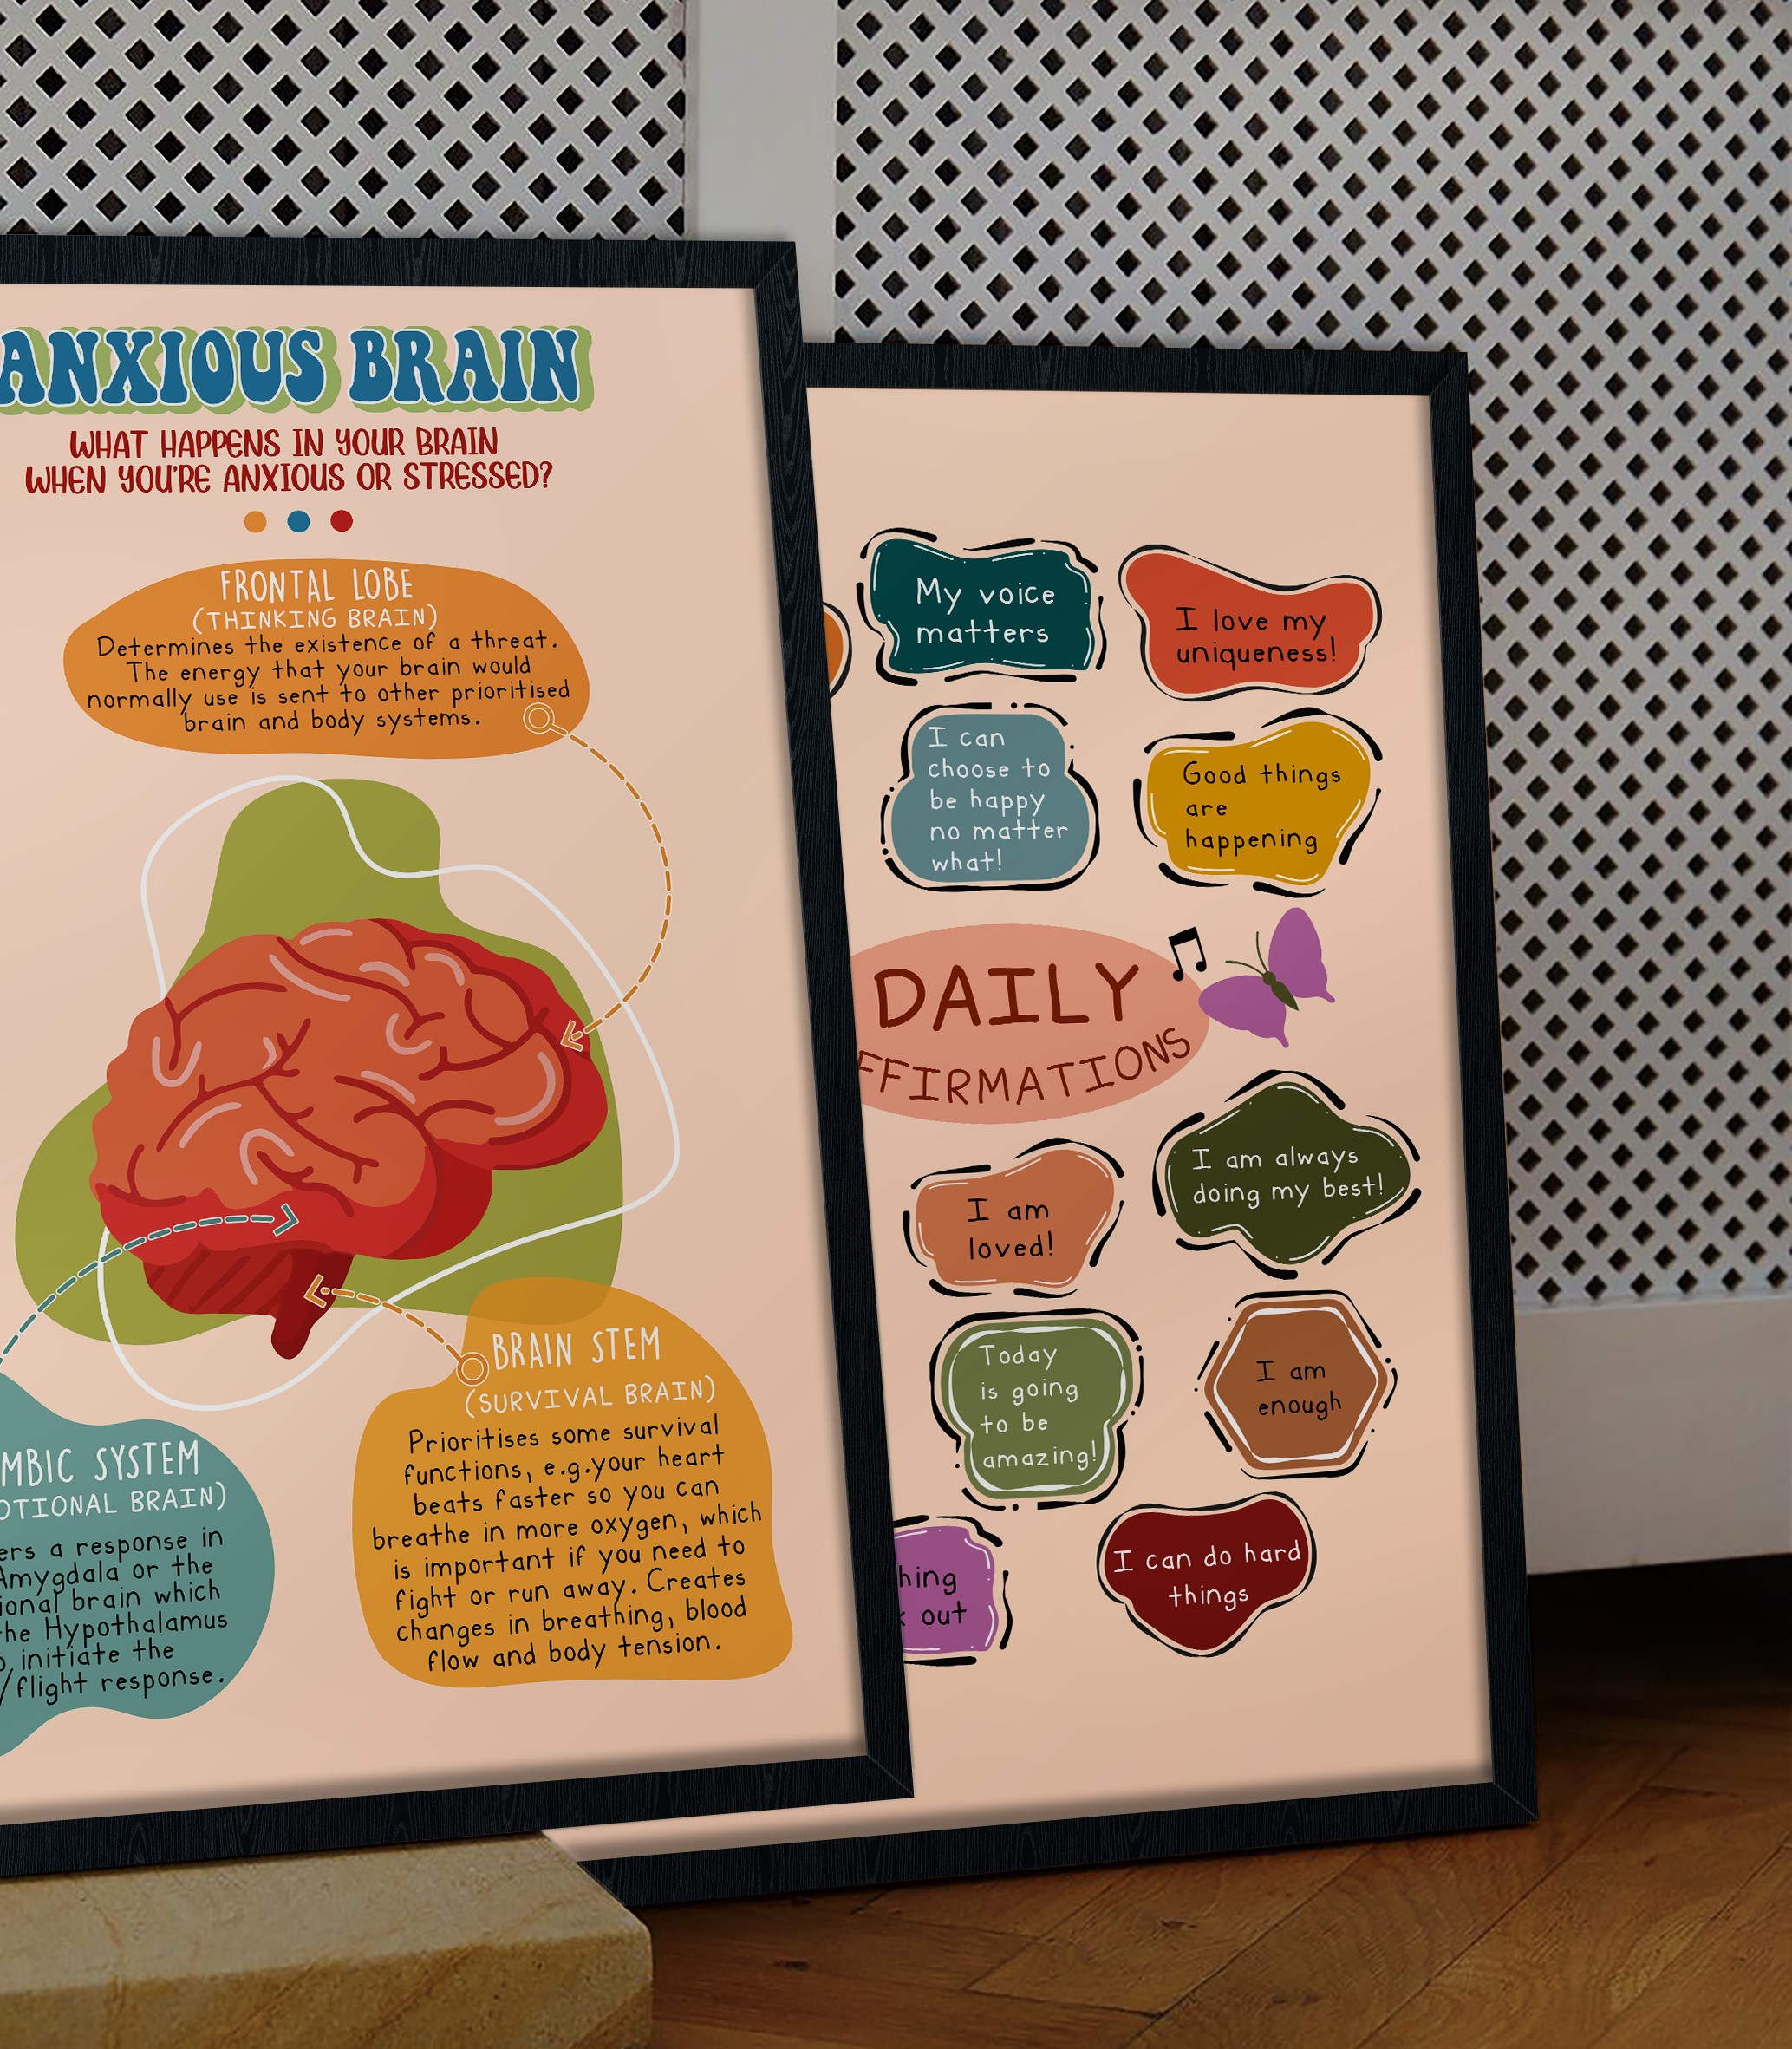 ANXIOUS BRAIN
WHAT HAPPENS IN YOUR BRAIN
WHEN YOU'RE ANXIOUS OR STRESSED?
FRONTAL LOBE
(THINKING BRAIN)
Determines the existence of a threat.
The energy that your brain would
normally use is sent to other prioritised
brain and body systems.
BRAIN STEM
(SURVIVAL BRAIN)
Prioritises some survival
functions, e.g.your heart
beats faster so you can
breathe in more oxygen, which
is important if you need to
fight or run away. Creates
changes in breathing, blood
flow and body tension.
SYSTEM
BRAIN)
a response in
Amygdala or the
brain which
Hypothalamus
initiate the
/flight response.
My voice
matters
I love my
uniqueness!
I can
choose to
be happy
no matter
what!
Good things
are
happening
DAILY
FFIRMATIONS
I am
loved!
I am always
doing my best!
Today
is going
to be
amazing!
I am
enough
out
I can do hard
things